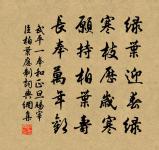 綠葉迎春綠
寒枝歷歲寒
願持柏葉壽
長奉萬年歡
武平一奉和正旦賜宰
臣柏葉應制詞典網集